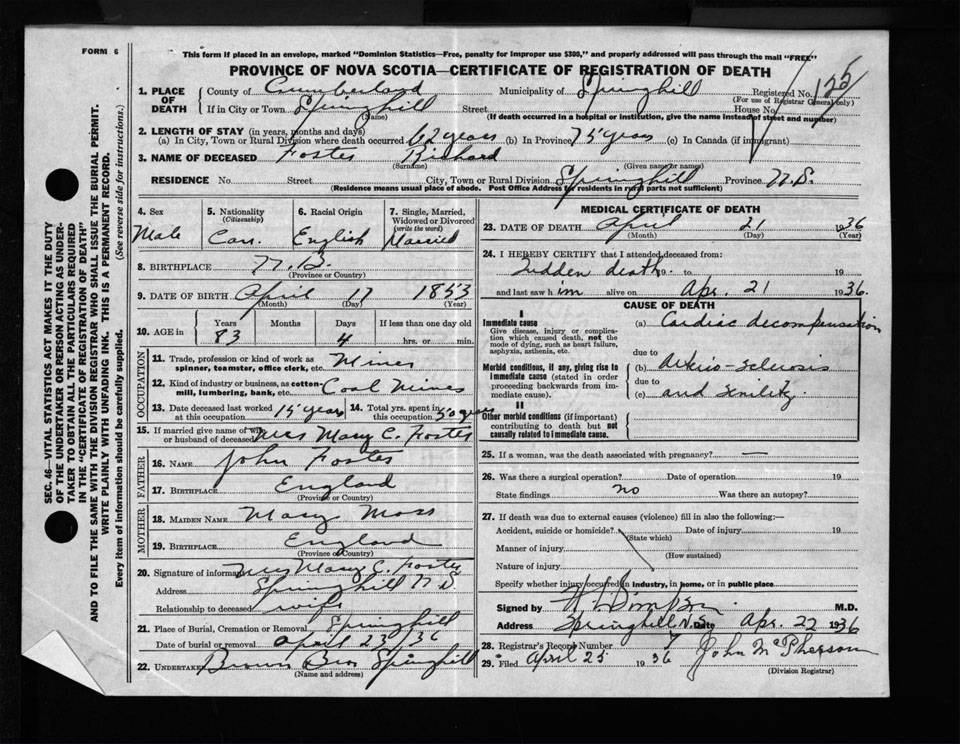 FORM 6
This form if placed in an envelope, marked "Dominion Statistics—Free, penalty for improper use $300," and properly addressed will pass through the mail "FREE"
PROVINCE OF NOVA SCOTIA—CERTIFICATE OF REGISTRATION OF DEATH
1. PLACE OF DEATH
County of Cumberland Municipality of Springhill Registered No. 125
(For use of Registrar General only)
If in City or Town Springhill Street House No.
(Name) (If death occurred in a hospital or institution, give the name instead of street and number)
2. LENGTH OF STAY (in years, months and days)
(a) In City, Town or Rural Division where death occurred 62 years (b) In Province 75 years (c) In Canada (if immigrant)
3. NAME OF DECEASED Foster Richard
(Surname) (Given name or names)
RESIDENCE No. Street City, Town or Rural Division Springhill Province N.S.
(Residence means usual place of abode. Post Office Address for residents in rural parts not sufficient)
4. Sex Male
5. Nationality (Citizenship) Can.
6. Racial Origin English
7. Single, Married, Widowed or Divorced (write the word) Married
8. BIRTHPLACE N.B.
(Province or Country)
9. DATE OF BIRTH April 17 1853
(Month) (Day) (Year)
10. AGE in Years Months Days If less than one day old
83 4 hrs. or min.
OCCUPATION
11. Trade, profession or kind of work as spinner, teamster, office clerk, etc. Miner
12. Kind of industry or business, as cotton-mill, lumbering, bank, etc. Coal Mines
13. Date deceased last worked at this occupation 15 years
14. Total yrs. spent in this occupation 50 years
15. If married give name of wife or husband of deceased Mrs Mary C. Foster
FATHER
16. NAME John Foster
17. BIRTHPLACE England
(Province or Country)
MOTHER
18. MAIDEN NAME Mary Moss
19. BIRTHPLACE England
(Province or Country)
20. Signature of informant Mrs Mary C. Foster
Address Springhill N.S
Relationship to deceased wife
21. Place of Burial, Cremation or Removal Springhill
Date of burial or removal April 23/36
22. UNDERTAKER Brown Bros Springhill
(Name and address)
MEDICAL CERTIFICATE OF DEATH
23. DATE OF DEATH April 21 1936
(Month) (Day) (Year)
24. I HEREBY CERTIFY that I attended deceased from:
Sudden death 19 to 19
and last saw him alive on Apr. 21 1936.
CAUSE OF DEATH
I
Immediate cause
Give disease, injury or complication which caused death, not the mode of dying, such as heart failure, asphyxia, asthenia, etc.
(a) Cardiac decompensation
due to
Morbid conditions, if any, giving rise to immediate cause (stated in order proceeding backwards from immediate cause).
(b) Arterio-sclerosis
due to
(c) and Senility
II
Other morbid conditions (if important) contributing to death but not causally related to immediate cause.
25. If a woman, was the death associated with pregnancy? —
26. Was there a surgical operation? Date of operation 19
State findings no Was there an autopsy?
27. If death was due to external causes (violence) fill in also the following:—
Accident, suicide or homicide? Date of injury 19
(State which)
Manner of injury
(How sustained)
Nature of injury
Specify whether injury occurred in industry, in home, or in public place
Signed by Simpson M.D.
Address Springhill N.S. Date Apr. 22 1936
28. Registrar's Record Number 7
29. Filed April 25 1936 John McPherson
(Division Registrar)
SEC. 46—VITAL STATISTICS ACT MAKES IT THE DUTY
OF THE UNDERTAKER OR PERSON ACTING AS UNDERTAKER
TO OBTAIN ALL THE PARTICULARS REQUIRED
IN THE "CERTIFICATE OF REGISTRATION OF DEATH"
AND TO FILE THE SAME WITH THE DIVISION REGISTRAR WHO SHALL ISSUE THE BURIAL PERMIT.
WRITE PLAINLY WITH UNFADING INK. THIS IS A PERMANENT RECORD.
Every item of information should be carefully supplied. (See reverse side for instructions.)